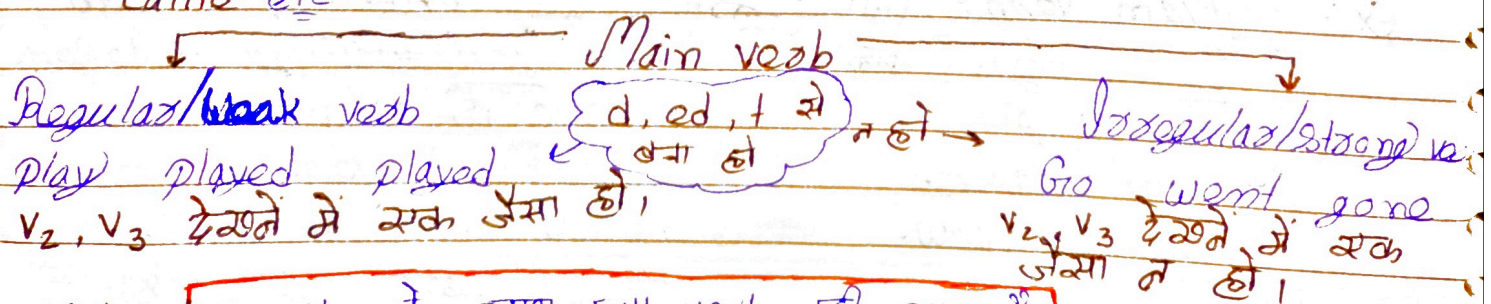 Main verb
Regular/Weak verb
d, ed, t से
बना हो
न हो →
Irregular/Strong ve
play played played
Go went gone
V₂, V₃ देखनें में एक जैसा हो।
V₂, V₃ देखनें में एक
जैसा न हो।